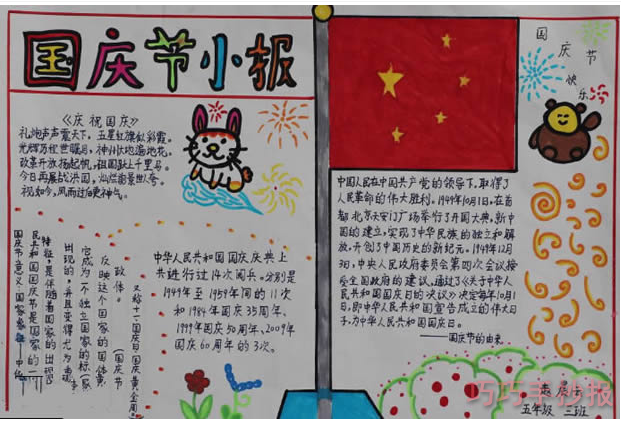 国庆节小报
《庆祝国庆》
礼炮声声震天下，五星红旗似彩霞。
光辉历程世瞩目，神州大地遍地花。
改革开放扬起帆，祖国跃上千里马。
今日再展战洪图，灿烂前景世人夸。
中华人民共和国国庆庆典上
共进行过14次阅兵。分别是
1949年至1959年间的11次
和1984年国庆35周年、
1999年国庆50周年、2009年
国庆60周年的3次。
国
庆
节
快
乐
中国人民在中国共产党的领导下，取得了
人民革命的伟大胜利。1949年10月1日，在首
都北京天安门广场举行了开国大典，新中
国的建立，实现了中华民族的独立和解
放，开创了中国历史的新纪元。1949年12月
3日，中央人民政府委员会第四次会议接
受全国政府的建议，通过了《关于中华人
民共和国国庆日的决议》决定每年10月1
日，即中华人民共和国宣告成立的伟大日
子，为中华人民共和国国庆日。
——国庆节的由来
又给十一国庆日国庆黄金周。
（国庆节
政体。
反映这个国家的国体
完成为一个独立国家的标
出现的，并且变得尤为
特征，是伴随着国家的出现
民共和国国庆节是国家的一
国庆节意义：国家象征
五年级 三班
巧巧手抄报